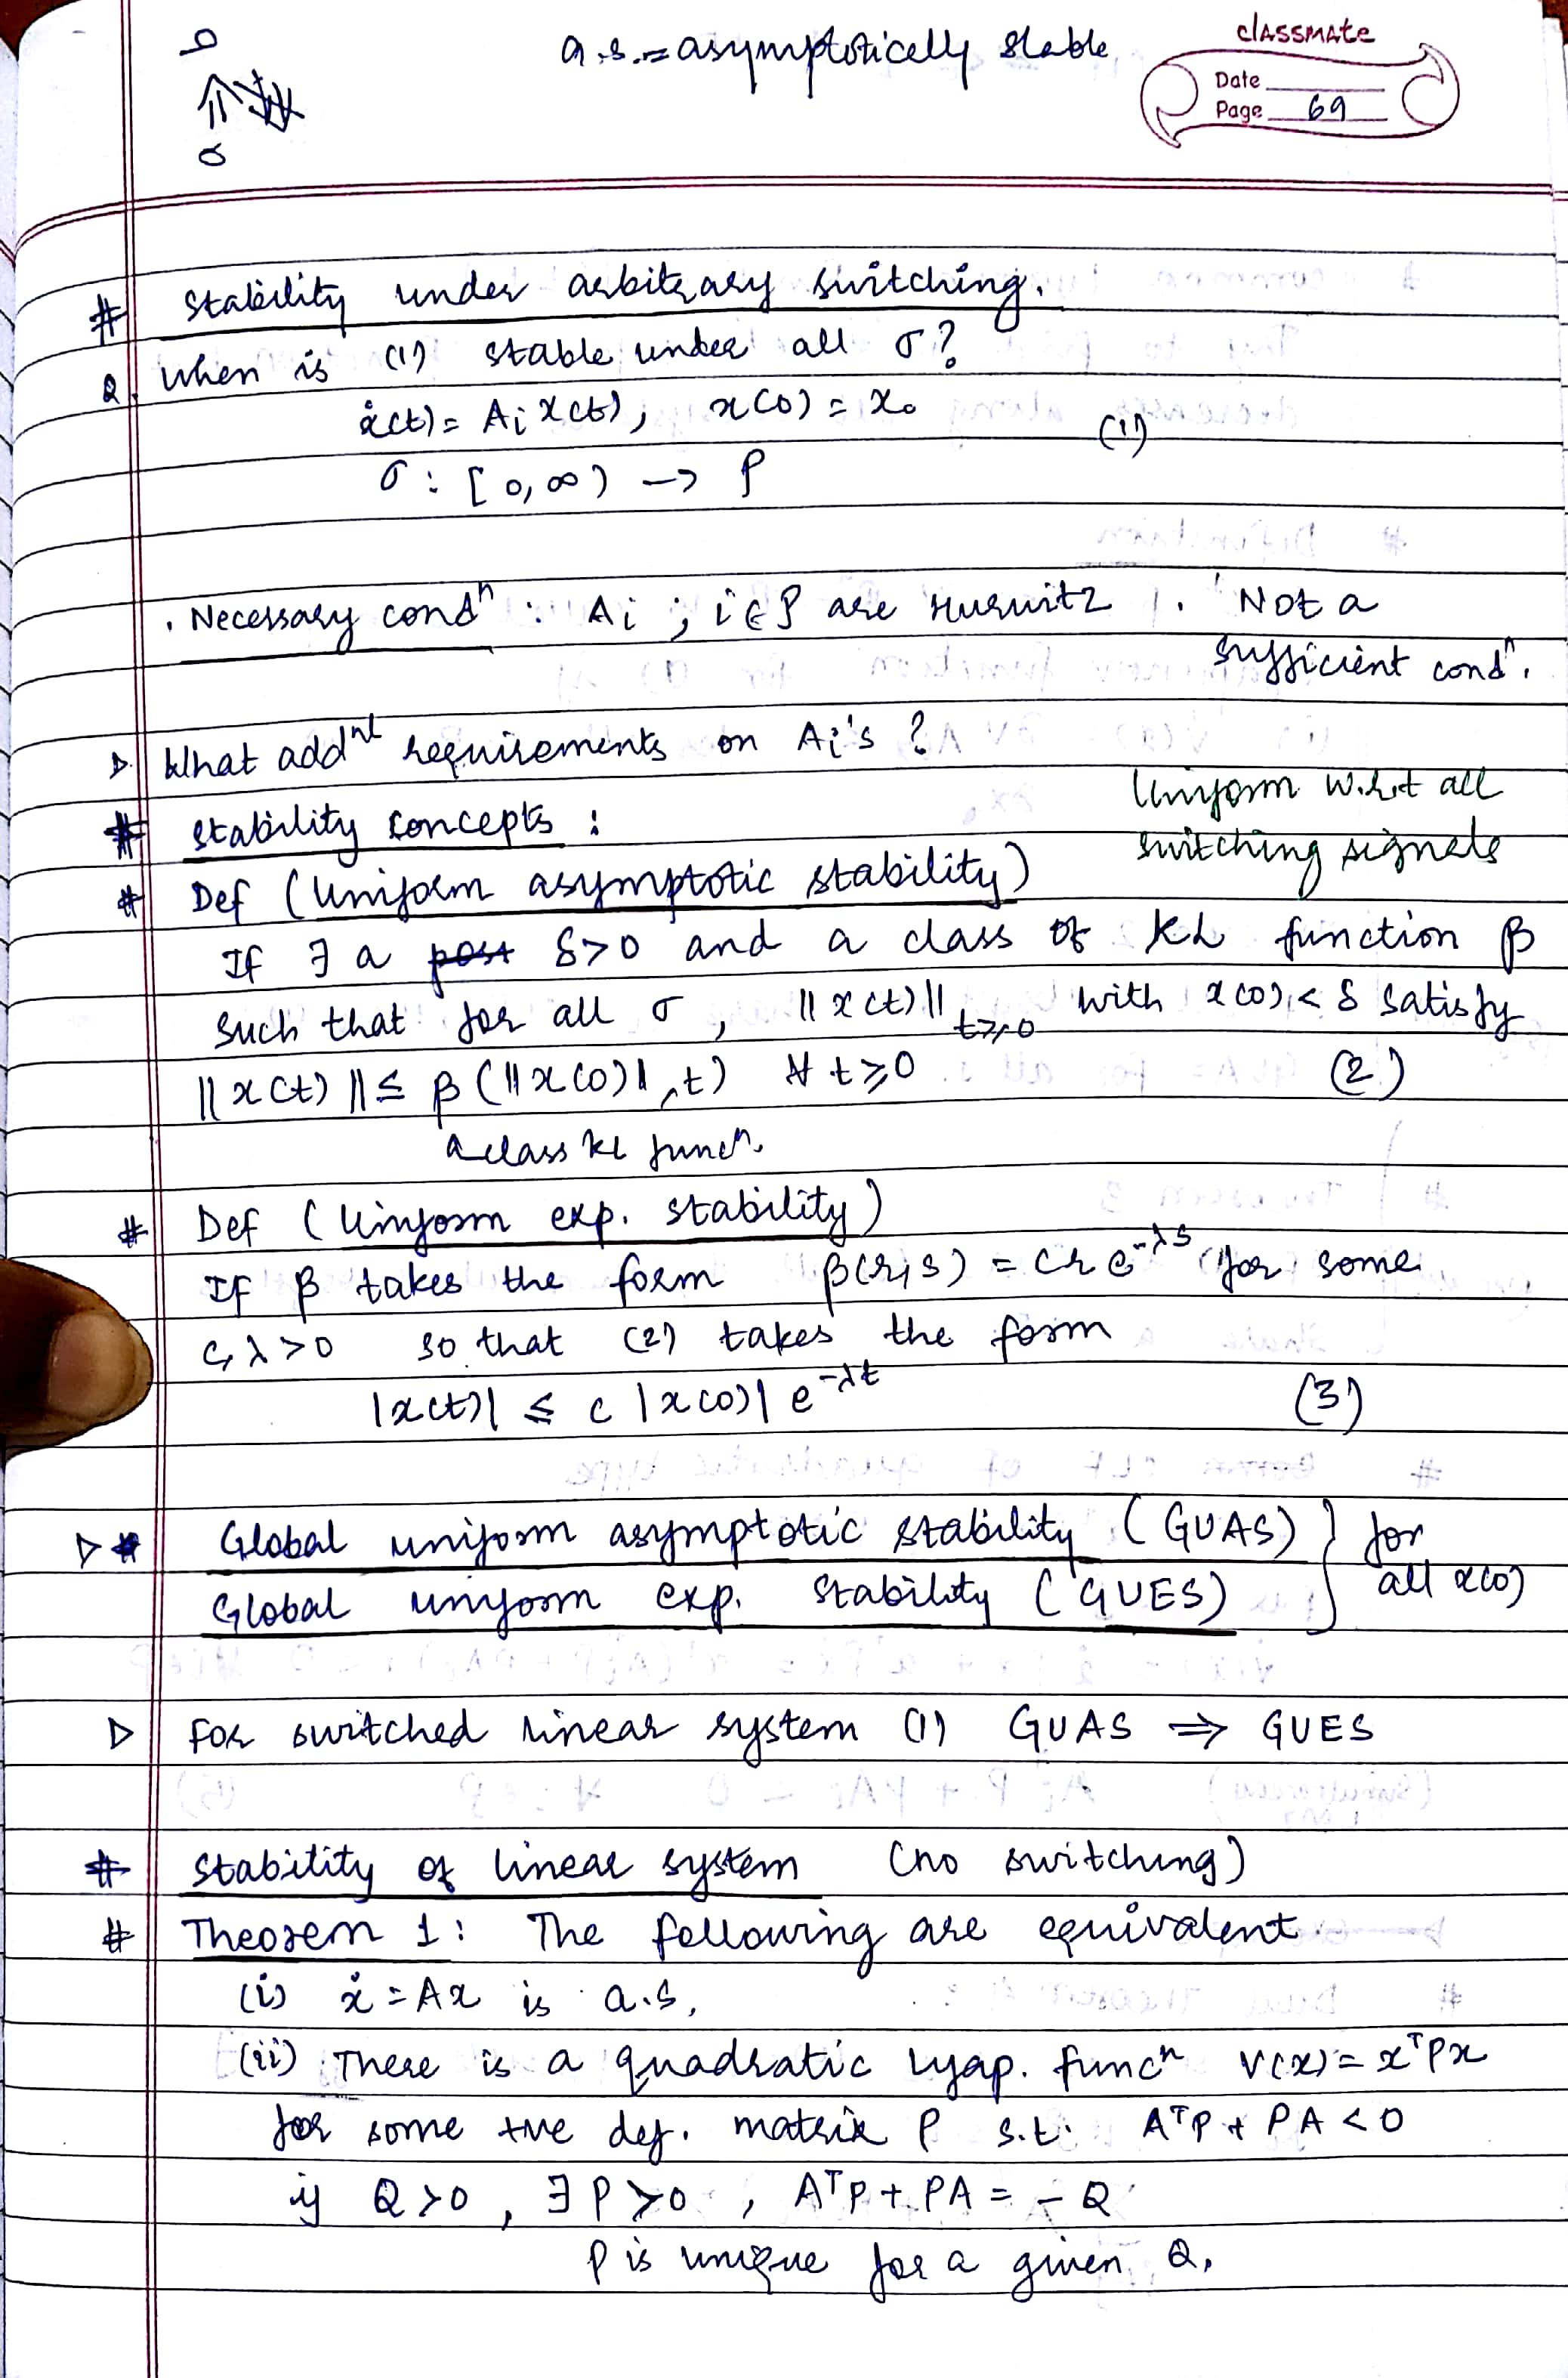 a.s. = asymptotically stable
classmate
Date
Page 69
# Stability under arbitrary switching.
Q. When is (1) stable under all σ?
ẋ(t) = Aᵢ x(t), x(0) = x₀ (1)
σ : [0, ∞) → P
. Necessary condⁿ : Aᵢ ; i ∈ P are Hurwitz . Not a
sufficient condⁿ.
▷ What addⁿˡ requirements on Aᵢ's ?
Uniform w.r.t all
switching signals
# Stability concepts :
# Def (Uniform asymptotic stability)
If ∃ a δ>0 and a class of KL function β
such that for all σ, ||x(t)|| t≥0 with x(0) < δ satisfy
||x(t)|| ≤ β(||x(0)||, t) ∀ t ≥ 0 (2)
a class KL funcⁿ.
# Def (Uniform exp. stability)
If β takes the form β(r,s) = c r e^{-λs} for some
c, λ > 0 so that (2) takes the form
|x(t)| ≤ c |x(0)| e^{-λt} (3)
▷ # Global uniform asymptotic stability (GUAS) } for
Global uniform exp. stability (GUES) } all x(0)
▷ For switched linear system (1) GUAS ⇒ GUES
# Stability of linear system (no switching)
# Theorem 1 : The following are equivalent.
(i) ẋ = Ax is a.s.
(ii) There is a quadratic lyap. funcⁿ V(x) = xᵀPx
for some +ve def. matrix P s.t. AᵀP + PA < 0
if Q > 0, ∃ P > 0, AᵀP + PA = - Q
P is unique for a given Q.